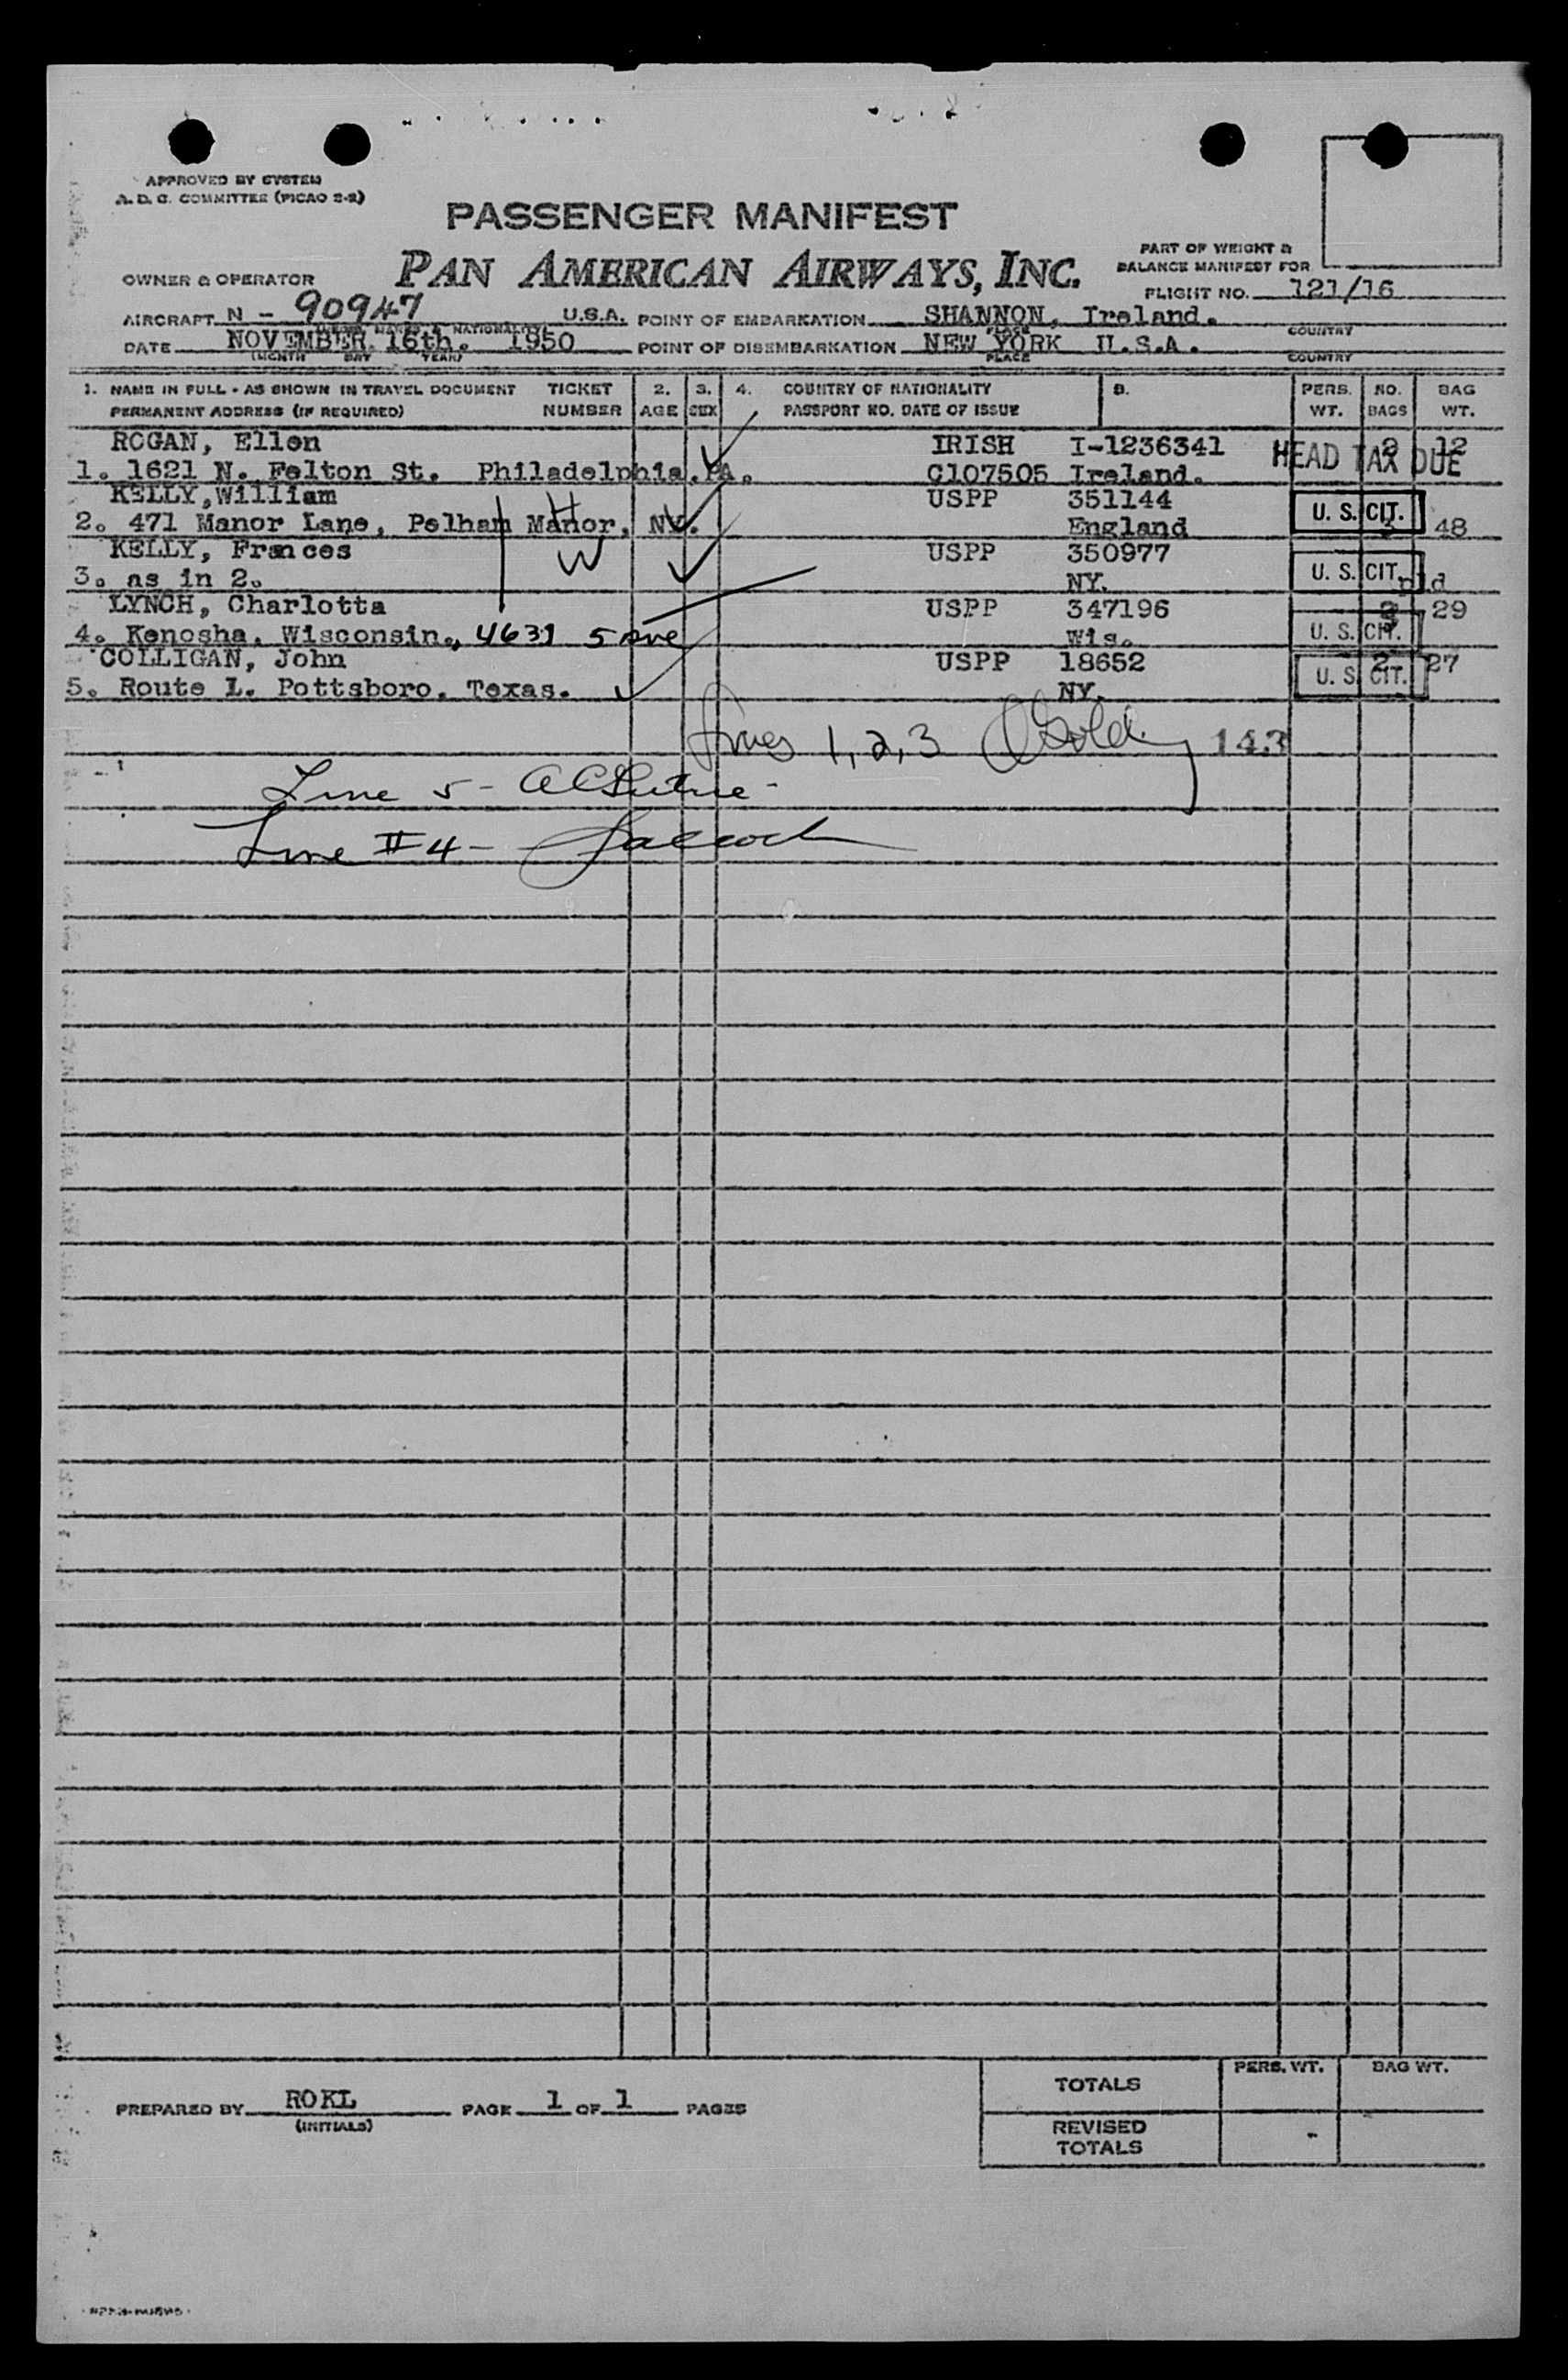 APPROVED BY SYSTEM
A. D. C. COMMITTEE (PICAO 2-2)
PASSENGER MANIFEST
PAN AMERICAN AIRWAYS, INC.
PART OF WEIGHT &
BALANCE MANIFEST FOR
OWNER & OPERATOR
FLIGHT NO. 121/16
AIRCRAFT N - 90947 U.S.A. POINT OF EMBARKATION SHANNON, Ireland.
PLACE COUNTRY
DATE NOVEMBER 16th. 1950 POINT OF DISEMBARKATION NEW YORK U.S.A.
(MONTH DAY YEAR) PLACE COUNTRY
1. NAME IN FULL - AS SHOWN IN TRAVEL DOCUMENT TICKET 2. 3. 4. COUNTRY OF NATIONALITY PERS. NO. BAG
PERMANENT ADDRESS (IF REQUIRED) NUMBER AGE SEX PASSPORT NO. DATE OF ISSUE WT. BAGS WT.
ROGAN, Ellen IRISH I-1236341 12
HEAD TAX DUE
1. 1621 N. Felton St. Philadelphia.PA. C107505 Ireland.
KELLY,William USPP 351144 U. S. CIT.
2. 471 Manor Lane, Pelham Manor, NY. H England 48
KELLY, Frances W USPP 350977 U. S. CIT.
3. as in 2. NY. pld
LYNCH, Charlotta USPP 347196 29
4. Kenosha, Wisconsin., 4631 5 Ave Wis. U. S. CIT.
COLLIGAN, John USPP 18652 2 27
5. Route 1. Pottsboro, Texas. NY. U. S. CIT.
Lines 1, 2, 3 143
Line 5 -
Line #4 -
PREPARED BY ROKL PAGE 1 OF 1 PAGES
(INITIALS)
PERS. WT. BAG WT.
TOTALS
REVISED
TOTALS